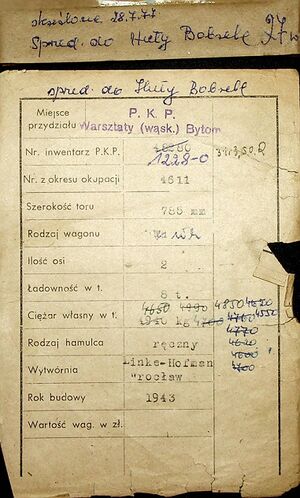 skreślone 28.7.77
Sprzed. do Huty Bobrek 27
sprzed. do Huty Bobrek
Miejsce przydziału P. K. P. Warsztaty (wąsk.) Bytom
Nr. inwentarz P.K.P. 1228-0
Nr. z okresu okupacji 4611
Szerokość toru 785 mm
Rodzaj wagonu
Ilość osi 2
Ładowność w t. 8 t.
Ciężar własny w t. 4650 4990 4850 4620
kg 4760 4550
4770
4620
4600
4700
Rodzaj hamulca ręczny
Wytwórnia Linke-Hofman
Wrocław
Rok budowy 1943
Wartość wag. w zł.